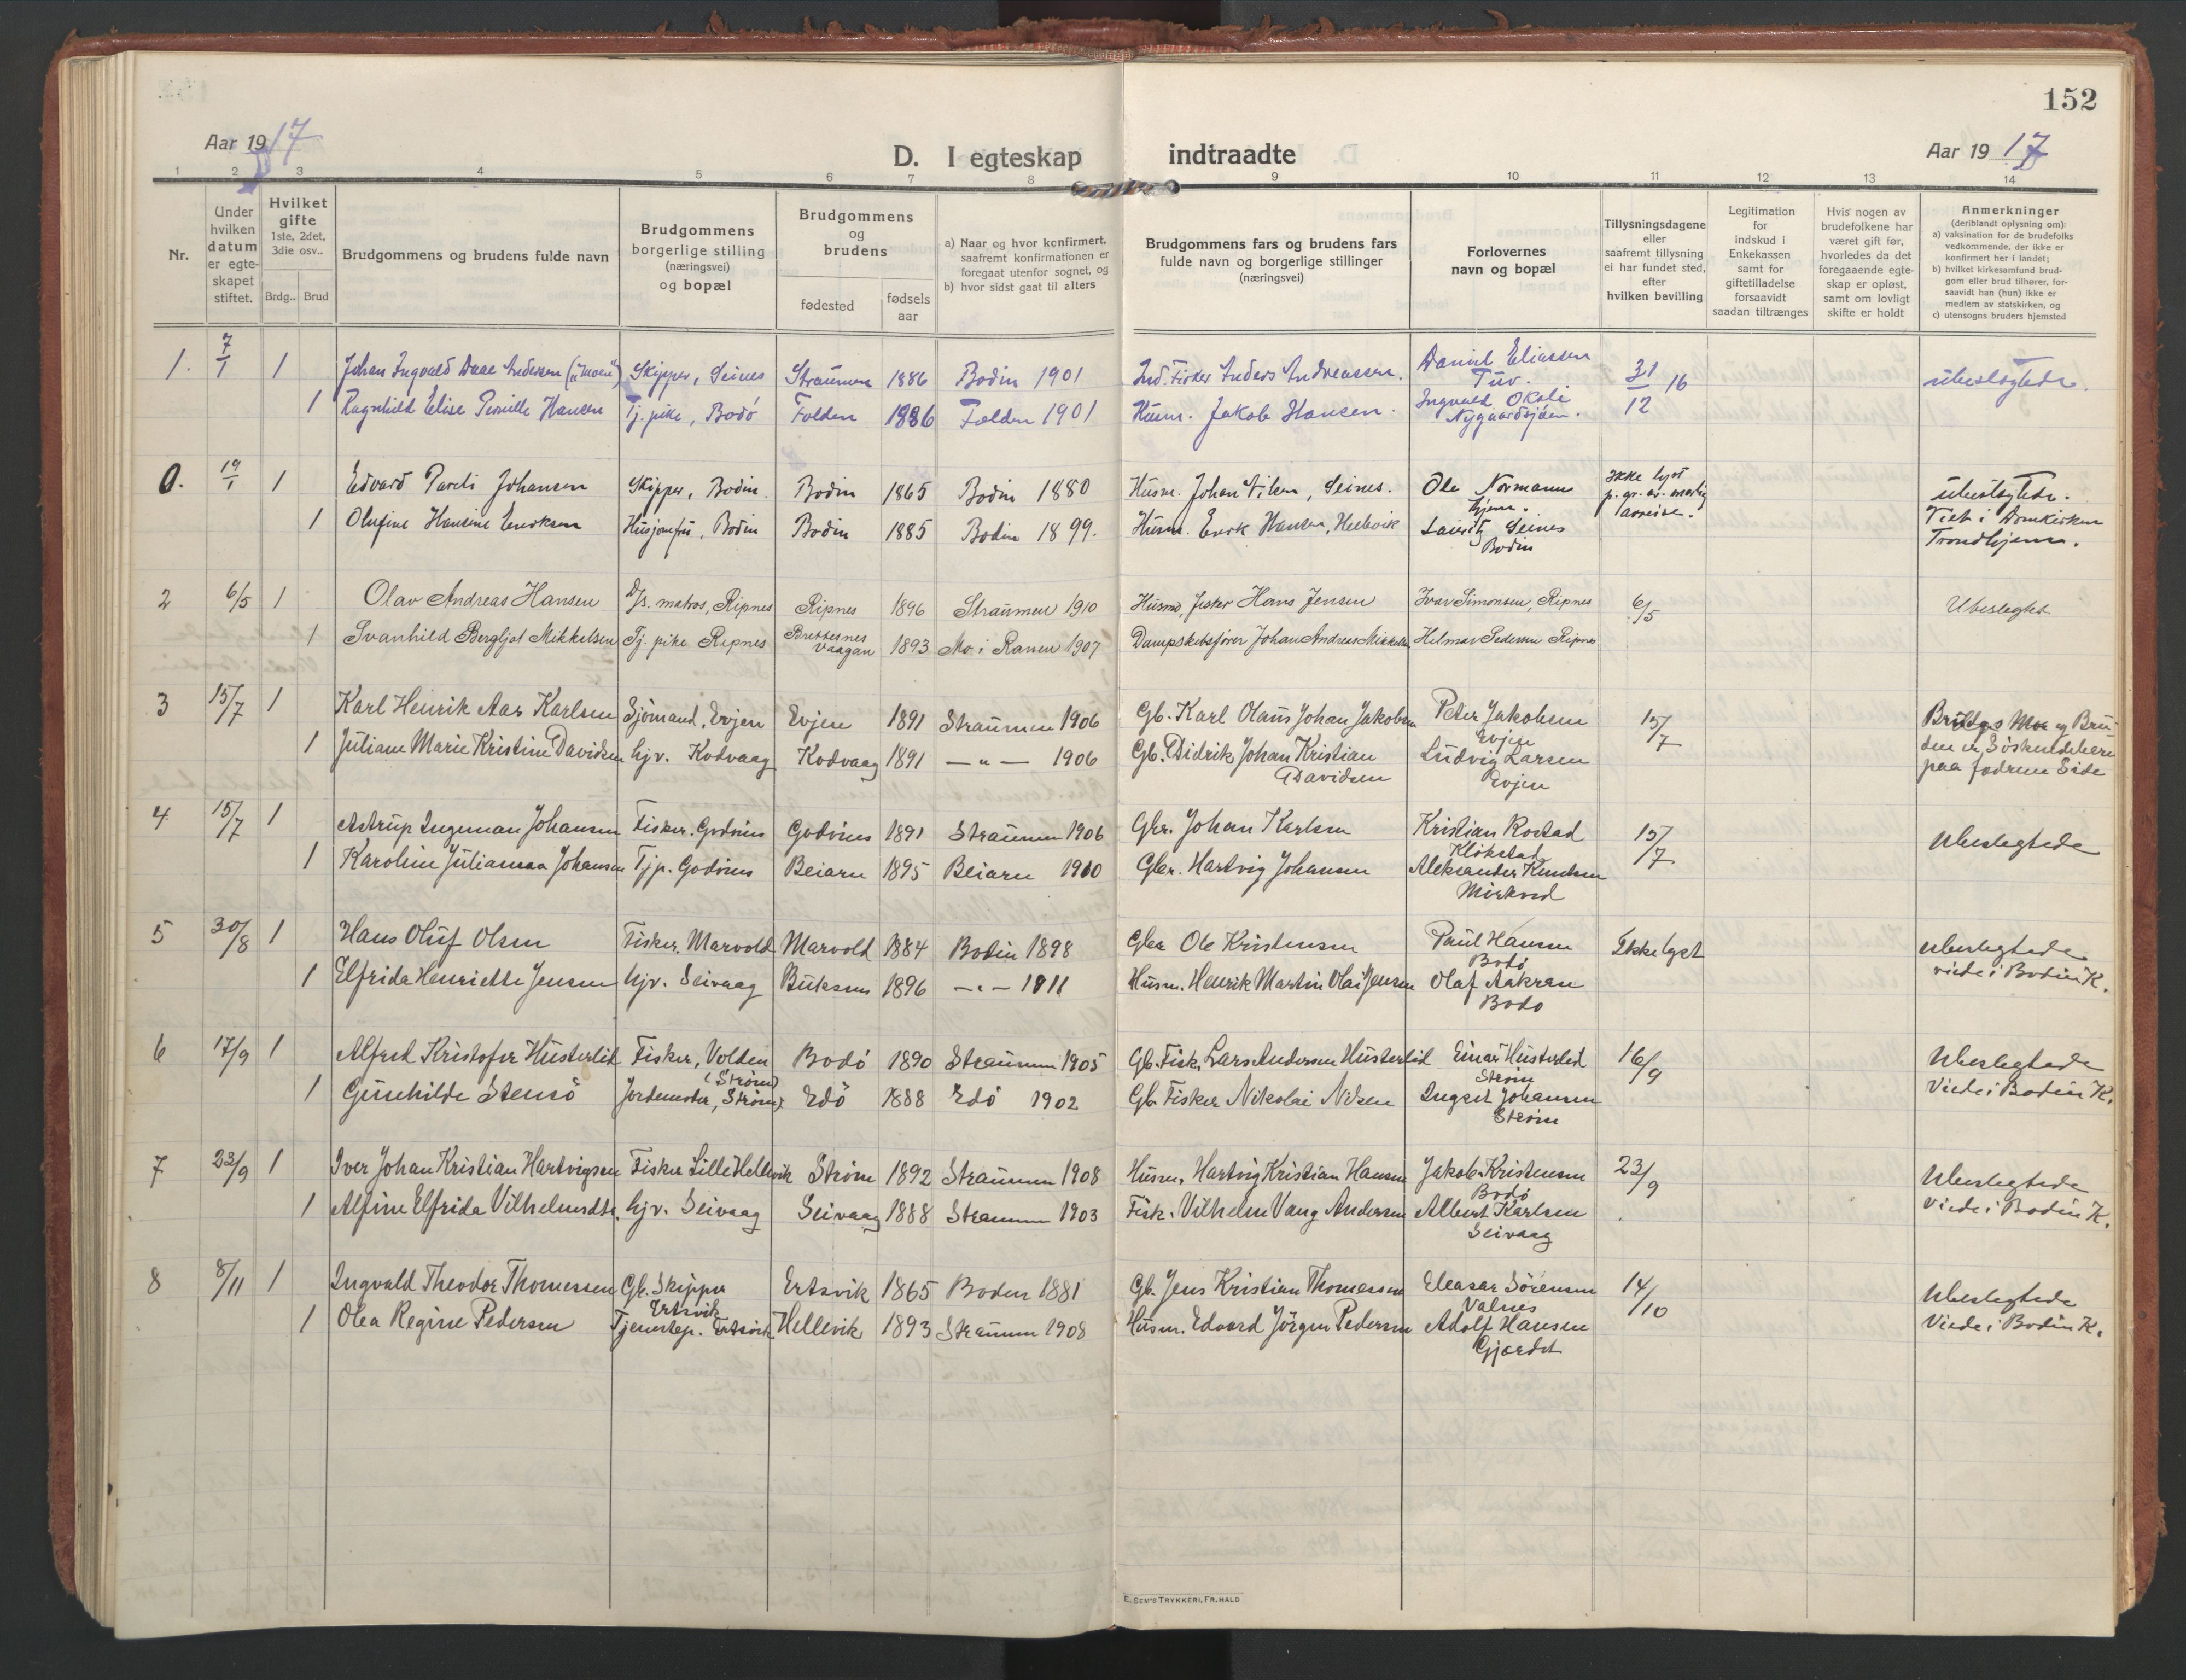 152
Aar 1917
D. I egteskap indtraadte
Aar 1917
1 2 3 4 5 6 7 8 9 10 11 12 13 14
Nr.
Under hvilken datum er egteskapet stiftet.
Hvilket gifte 1ste, 2det, 3die osv..
Brdg.. Brud
Brudgommens og brudens fulde navn
Brudgommens borgerlige stilling (næringsvei) og bopæl
Brudgommens og brudens
fødested
fødsels aar
a) Naar og hvor konfirmert, saafremt konfirmationen er foregaat utenfor sognet, og
b) hvor sidst gaat til alters
Brudgommens fars og brudens fars fulde navn og borgerlige stillinger (næringsvei)
Forlovernes navn og bopæl
Tillysningsdagene eller saafremt tillysning ei har fundet sted, efter hvilken bevilling
Legitimation for indskud i Enkekassen samt for giftetilladelse forsaavidt saadan tiltrænges
Hvis nogen av brudefolkene har været gift før, hvorledes da det foregaaende egteskap er opløst, samt om lovligt skifte er holdt
Anmerkninger (deriblandt oplysning om):
a) vaksination for de brudefolks vedkommende, der ikke er konfirmert her i landet;
b) hvilket kirkesamfund brudgom eller brud tilhører, forsaavidt han (hun) ikke er medlem av statskirken, og
c) utensogns bruders hjemsted
1. 7/1 1 Johan Ingvald Daae Andersen ("Moen") Skipper, Seines Straumen 1886 Bodin 1901 Ind. Fisker Anders Andreassen. Daniel Eliassen Tuv. 31/12 16 ubeslægtede.
1 Ragnhild Elise Pernille Hansen Tj. pike, Bodø Folden 1886 Folden 1901 Husm. Jakob Hansen. Ingvald Okali Nygaardsjøen.
0. 19/1 1 Edvard Pareli Johansen Skipper, Bodin. Bodin 1865 Bodin 1880 Husm. Johan Nilsen, Seines. Ole Normann Hjem. Ikke lyst p. gr. av. snarlig avreise. ubeslægtede.
1 Olufine Hansine Eriksen Husjomfru, Bodin Bodin 1885 Bodin 1899. Husm. Erik Hansen, Hellevik Lauritz Seines Bodin Viet i Domkirken Trondhjem.
2 6/5 1 Olav Andreas Hansen D/s. matros, Ripnes Ripnes 1896 Straumen 1910 Husmd, fisker Hans Jensen Ivar Simonsen, Ripnes 6/5 Ubeslegtet
1 Svanhild Bergljot Mikkelsen Tj. pike Ripnes Brettesnes Vaagan 1893 Mo i Ranen 1907 Dampskibsfører Johan Andreas Mikkelsen Helmar Pedersen Ripnes
3 15/7 1 Karl Henrik Aas Karlsen Sjömand, Evjen Evjen 1891 Straumen 1906 Gb. Karl Olaus Johan Jakobsen Peter Jakobsen Evjen 15/7 Brudgs Mor og Bruden er Söskendebarn paa fædrene Side
1 Juliane Marie Kristine Davidsen hjv. Kodvaag Kodvaag 1891 — " — 1906 Gb. Didrik Johan Kristian Davidsen Ludvig Larsen Evjen
4 15/7 1 Astrup Ingeman Johansen Fisker. Godönes Godönes 1891 Straumen 1906 Gbr. Johan Karlsen Kristian Rostad Klökstad 15/7 Ubeslegtede
1 Karoline Julianna Johansen Tjp. Godönes Beiarn 1895 Beiarn 1910 Gbr. Hartvig Johansen Aleksander Knudsen Mörkved
5 30/8 1 Hans Oluf Olsen Fisker. Marvold Marvold 1884 Bodin 1898 Gbr Ole Kristensen Paul Hansen Bodö Ikke lyst Ubeslegtede
1 Elfrida Henriette Jensen hjv. Seivaag Buksnes 1896 — " — 1911 Husm. Henrik Martin Olai Jensen Olaf Aakran Bodö viede i Bodin K.
6 17/9 1 Alfred Kristofer Husterlid Fisker, Volden (Ström) Bodö 1890 Straumen 1905 Gb. Fisk. Lars Andersen Husterlid Einar Husterlid Ström 16/9 Ubeslegtede
1 Gunhilde Stensö Jordemoder, Ström Edö 1888 Edö 1902 Gb. Fisker Nikolai Nilsen Ingset Johansen Ström Viede i Bodin K.
7 23/9 1 Iver Johan Kristian Hartvigsen Fisker Lille Hellevik Ström 1892 Straumen 1908 Husm. Hartvig Kristian Hansen Jakob Kristensen Bodö 23/9 Ubeslegtede
1 Alfine Elfrida Vilhelmsdtr. hjv. Seivaag Seivaag 1888 Straumen 1903 Fisk. Vilhelm Vang Andersen Albert Karlsen Seivaag Viede i Bodin K.
8 8/11 1 Ingvald Theodor Thomessen Gb. Skipper Ertsvik Ertsvik 1865 Bodin 1881 Gb. Jens Kristian Thomessen Eleasar Sörensen Valnes 14/10 Ubeslegtede
1 Olea Regine Pedersen Tjenestep. Ertsvik Hellevik 1893 Straumen 1908 Husm. Edvard Jörgen Pedersen Adolf Hansen Gjærdet Viede i Bodin K.
E. SEM'S TRYKKERI, FR. HALD